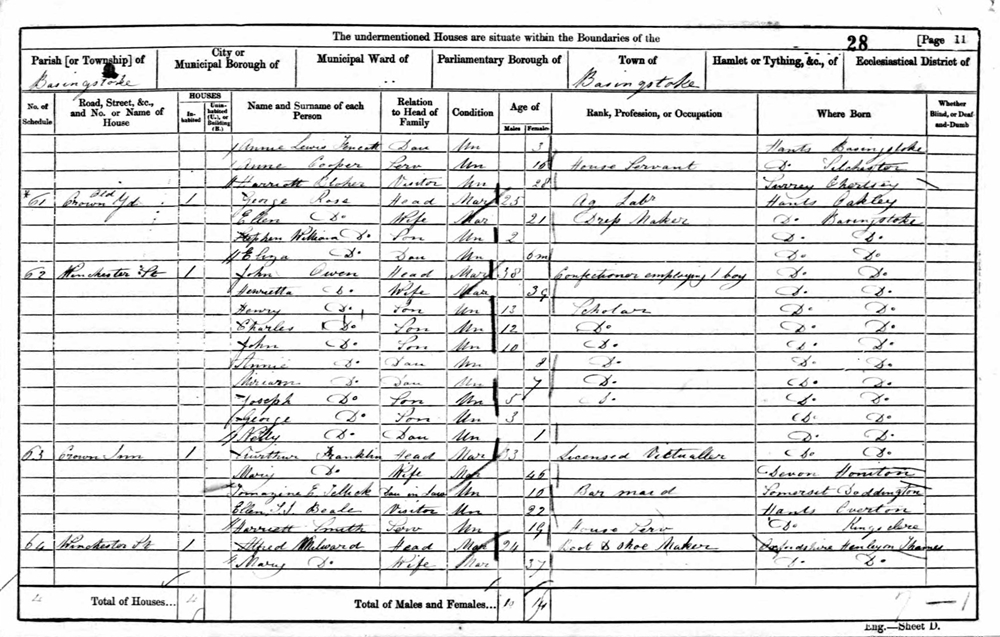 The undermentioned Houses are situate within the Boundaries of the
28 [Page 11
Parish [or Township] of
Basingstoke
City or Municipal Borough of
Municipal Ward of
Parliamentary Borough of
Town of
Basingstoke
Hamlet or Tything, &c., of
Ecclesiastical District of
No. of Schedule
Road, Street, &c., and No. or Name of House
HOUSES
Inhabited
Uninhabited (U.), or Building (B.)
Name and Surname of each Person
Relation to Head of Family
Condition
Age of
Males Females
Rank, Profession, or Occupation
Where Born
Whether Blind, or Deaf-and-Dumb
Annie Lewis Dau Un 3 Hants Basingstoke
Anne Cooper Serv Un 16 House Servant Do Silchester
Harriett Visitor Un 28 Surrey Chertsey
61 Old Crown Yd 1 George Rose Head Mar 25 Ag Labr Hants Oakley
Ellen Do Wife Mar 21 Drep Maker Do Basingstoke
Stephen William Do Son Un 2 Do Do
Eliza Do Dau Un 6m Do Do
62 Winchester St 1 John Owen Head Mar 38 Confectioner employing 1 boy Do Do
Henrietta Do Wife Mar 39 Do Do
Henry Do Son Un 13 Scholar Do Do
Charles Do Son Un 12 Do Do Do
John Do Son Un 10 Do Do Do
Annie Do Dau Un 8 Do Do Do
Miriam Do Dau Un 7 Do Do Do
Joseph Do Son Un 5 Do Do Do
George Do Son Un 3 Do Do
Nelly Do Dau Un 1 Do Do
63 Crown Inn 1 Franklin Head Mar Licensed Victualler Do Do
Mary Do Wife Mar 46 Devon Honiton
Tomazine E. Dau in Law Un 10 Bar maid Somerset Doddington
Ellen Beale Visitor Un 22 Hants Overton
Harriett Smith Serv Un 19 House Serv Do Kingsclere
64 Winchester St 1 Alfred Milward Head Mar 24 Boot & Shoe Maker Oxfordshire Henley on Thames
Mary Do Wife Mar 37 Do Do
4 Total of Houses... 4 Total of Males and Females... 10 14
Eng.—Sheet D.